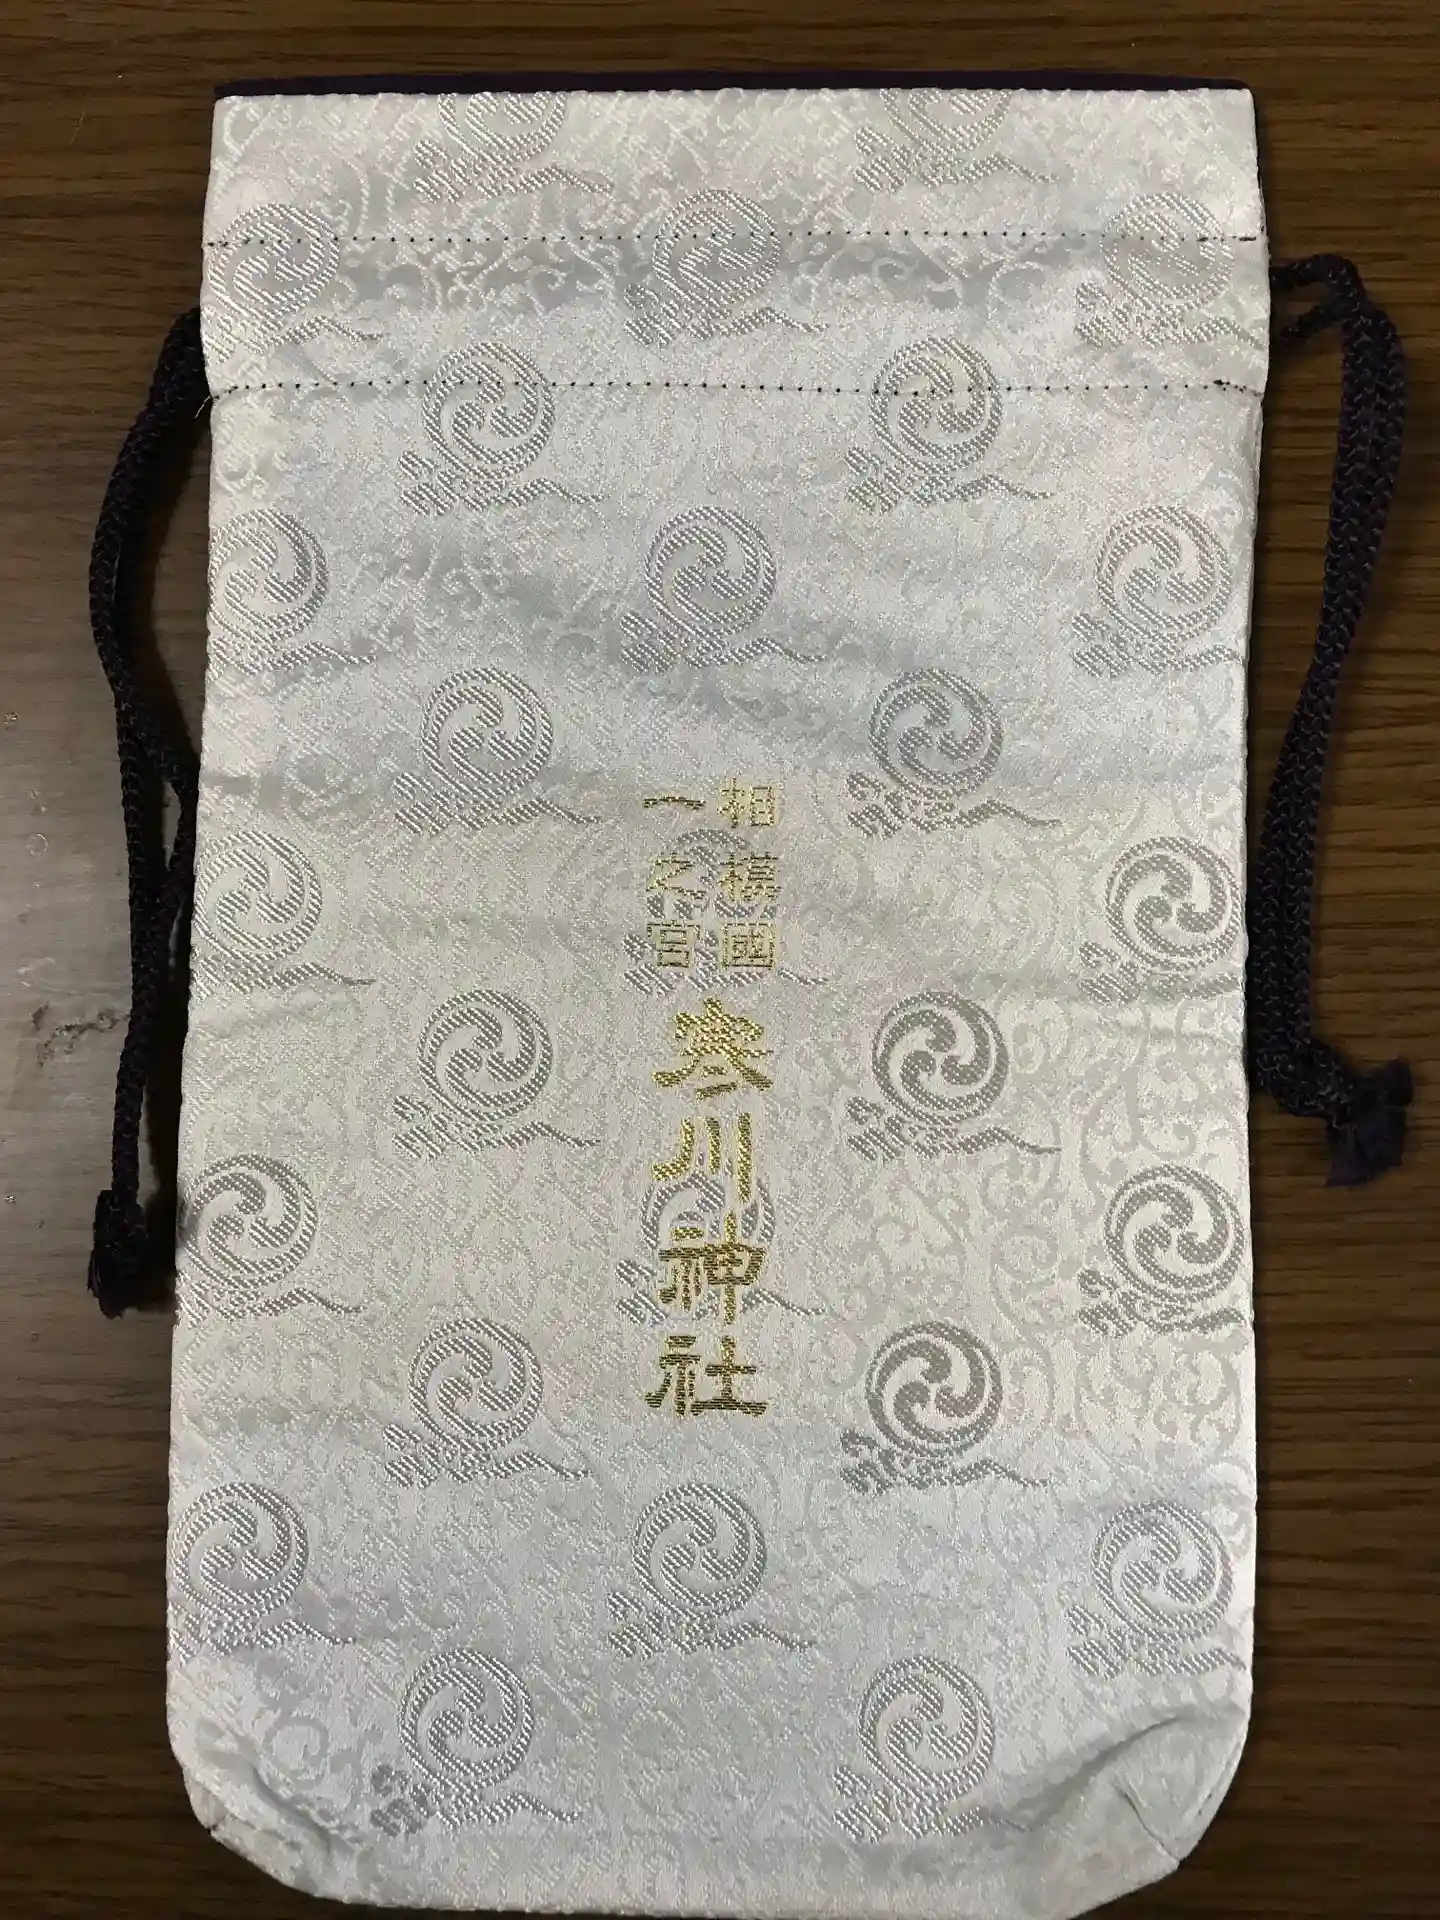 相模國
一之宮
寒川神社